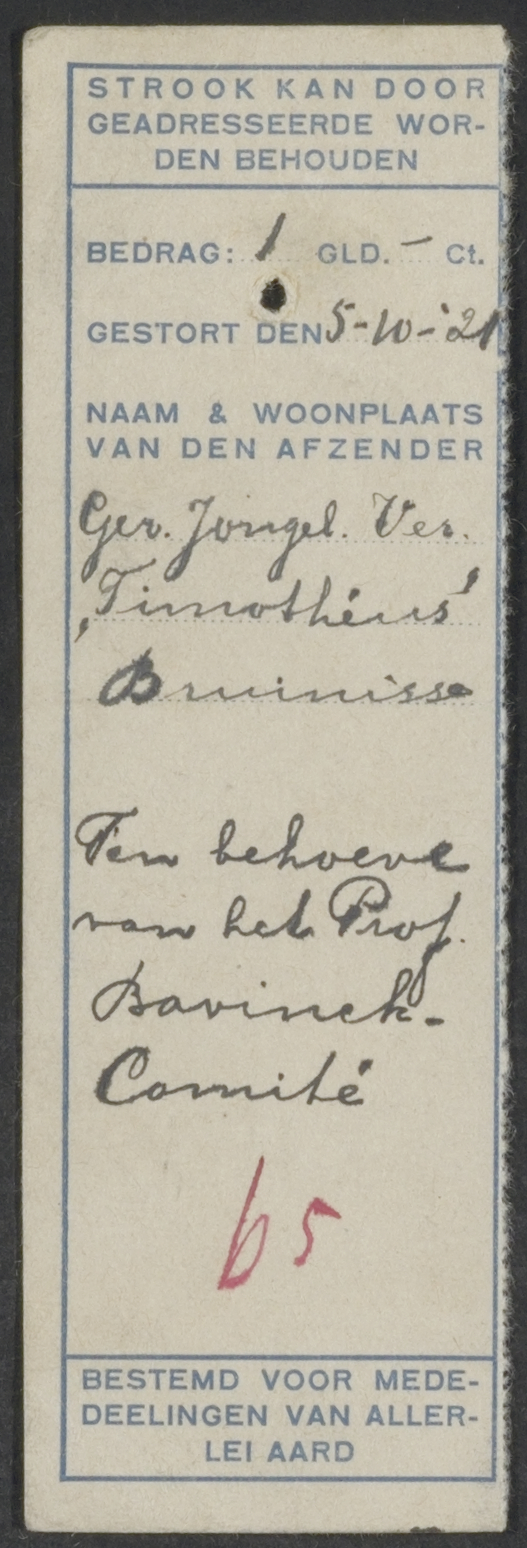 STROOK KAN DOOR
GEADRESSEERDE WOR-
DEN BEHOUDEN
BEDRAG: 1 GLD. - Ct.
GESTORT DEN 5-10-'21
NAAM & WOONPLAATS
VAN DEN AFZENDER
Ger. Jongel. Ver.
„Timothéus"
Bruinisse
Ten behoeve
van het Prof.
Bavinck-
Comité
65
BESTEMD VOOR MEDE-
DEELINGEN VAN ALLER-
LEI AARD